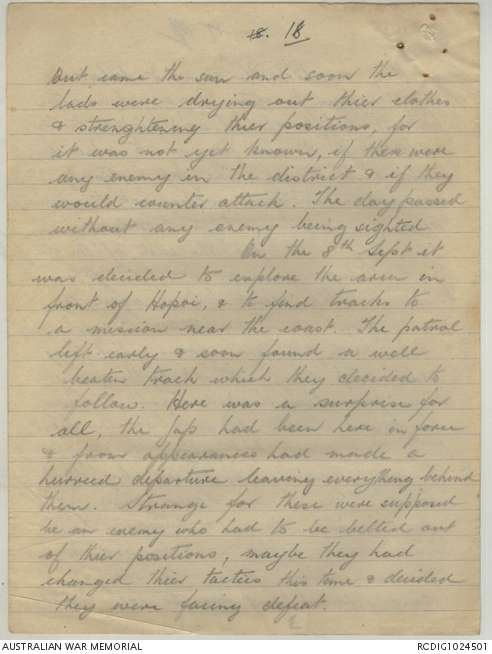 18. 18
Out came the sun and soon the
lads were drying out thier clothes
& strenghtening thier positions, for
it was not yet known, if there were
any enemy in the district & if they
would counter attack. The day passed
without any enemy being sighted
On the 8th Sept it
was decided to explore the area in
front of Hopoi, & to find tracks to
a mission near the coast. The patrol
left early & soon found a well
beaten track which they decided to
follow. Here was a surprise for
all, the Japs had been here in force
& from appearances had made a
hurried departure leaving everything behind
them. Strange for these were supposed
be an enemy who had to be belted out
of thier positions, maybe they had
changed thier tactics this time & decided
they were facing defeat.
AUSTRALIAN WAR MEMORIAL
RCDIG1024501